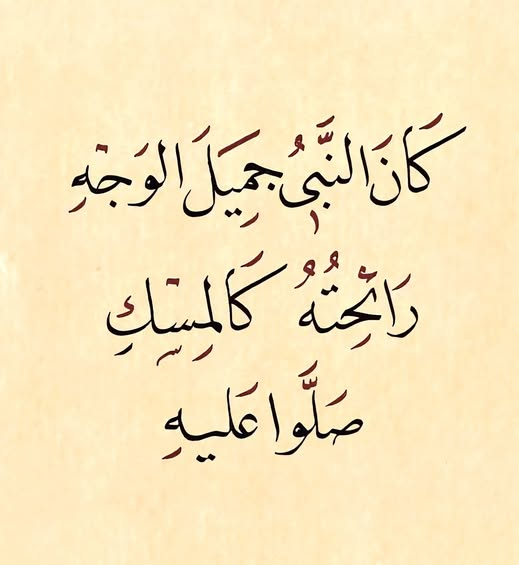 كَانَ النَّبِيُّ جَمِيلَ الوَجْهِ
رَائِحَتُهُ كَالمِسْكِ
صَلَّوا عَليهِ